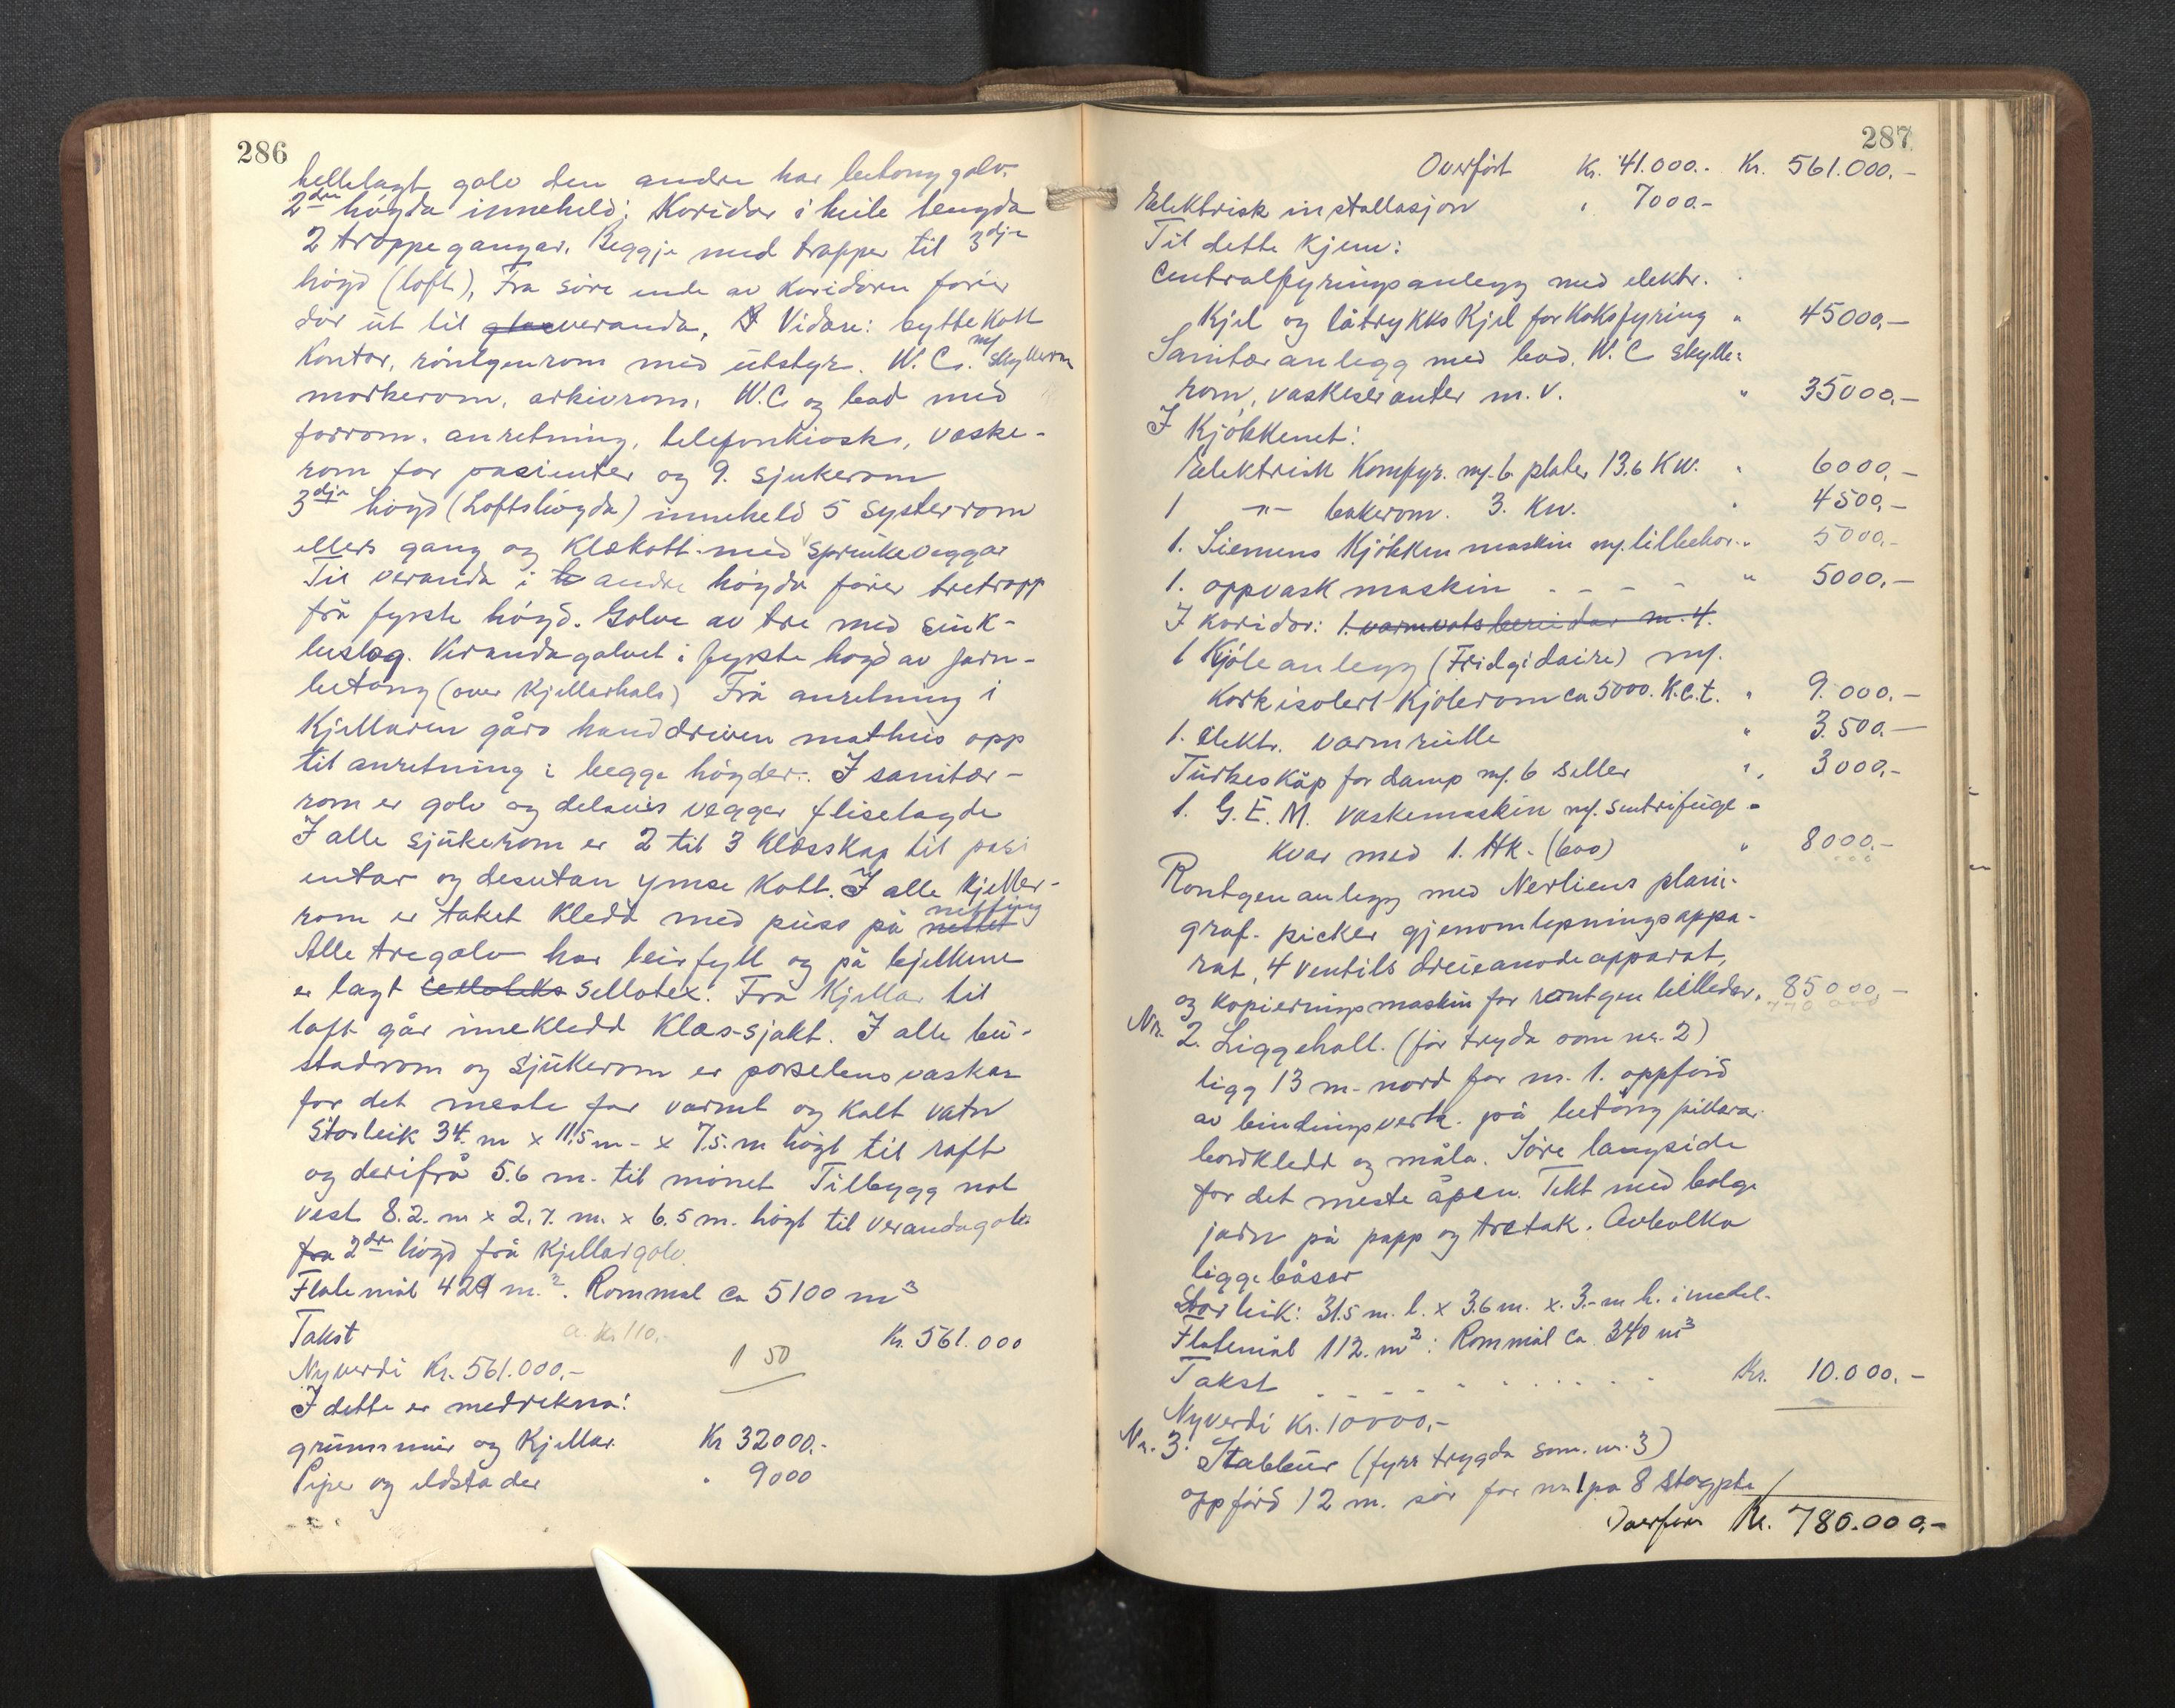 286
hellelagt golv den andre har betong golv.
2dre høgda inneheld: Koridor i heile lengda
2 troppegangar. Beggje med trapper til 3dje
høgd (loft), Fra søre ende av Koridoren fører
dør ut til veranda, Vidare: byttekott
Kontor, röntgenrom med utstyr. W. Cs. m/ skyllerom
morkerom, arkivrom, W.C. og bad med
forrom, anretning, telefonkiosk, vaske-
rom for pasienter og 9. sjukerom
3dje høgd (Loftshøgda) inneheld 5 systerrom
ellers gang og Klækott med sprinkeveggar
Til veranda i andre høgda fører tretropp
frå fyrste høgd. Golve av tre med sink-
beslag. Verandagolvet i fyrste høgd av jarn-
betong (over Kjellarhals) Frå anretning i
Kjellaren gårs handdriven matheis opp
til anretning i begge høgder. I sanitær-
rom er golv og delevis vegger fliselagde
I alle sjukerom er 2 til 3 Klæsskap til pasi
entar og desutan ymse Kott. I alle Kjeller-
rom er taket Kledd med puss på netting
Alle tregolv har leirfyll og på bjelkene
er lagt Sellotex. Fra Kjellar til
loft går innekledd Klæs-sjakt. I alle bu-
stadrom og Sjukerom er porselens vaskar
for det meste for varmt og Kalt vatn
Storleik 34. m x 11.5 m - x 7.5. m høgt til raft
og derifrå 5.6 m. til mønet Tilbygg mot
vest 8.2. m x 2.7. m. x 6.5 m. høgt til verandagolv
fra 2dre høgd frå Kjellargolv.
Flatemål 429 m.². Rommål ca 5100 m³
Takst a. kr 110,- Kr. 561.000
Nyverdi Kr. 561.000,- 1 50
I dette er medrekna:
grunnmur og Kjellar. Kr 32000.-
Piper og eldstader " 9000
287
Overført Kr. 41.000.- Kr. 561.000,-
Elektrisk installasjon " 7000.-
Til dette kjem:
Centralfyringsanlegg med elektr.
Kjel og låtrykks Kjel for Koksfyring " 45000,-
Sanitæranlegg med bad, W. C skylle-
rom, vaskeservanter m. v. " 35000,-
I Kjøkkenet:
Elektrisk Komfyr. m/ 6 plater 13.6 Kw. " 6000,-
1 -"- bakerom. 3. Kw. " 4500,-
1. Siemens Kjøkken maskin m/ tilbehør. " 5000,-
1. oppvask maskin - - - " 5000,-
I Koridor: 1. varmvatsbereidar m. 4.
1 Kjøleanlegg (Fridgidaire) m/
Korkisolert Kjølerom ca 5000. K.c.t. " 9.000,-
1. elektr. varmrulle " 3.500.-
Türkeskåp for damp m/ 6 seller " 3000,-
1. G. E. M. vaskemaskin m/ sentrifuge
kvar med 1. Hk. (600) " 8000.-
Rontgenanlegg med Nerliens plani-
graf- picker gjenomlepningsappa-
rat, 4 ventils dreieanodeapparat,
og kopieringsmaskin for røntgen billeder. 85000,-
Nr. 2. Liggehall. (før tryda som nr. 2)
ligg 13 m. nord for nr. 1. oppførd
av bindingsverk. på betong pillarar
bordkledd og måla. Søre langside
for det meste åpen. Tekt med bølge
jarn på papp og tretak. Avbolka
liggebåsar
Storleik: 31.5 m. l. x 3.6 m. x. 3.- m h. i medel.
Flatemål 112. m²: Rommål ca 340 m³
Takst Kr. 10.000.-
Nyverdi Kr. 10000,-
Nr. 3. Stabbur (fyrr trygda som. nr. 3)
oppførd 12 m. sør for nr 1 på 8 støypte
Overføres Kr. 780.000,-